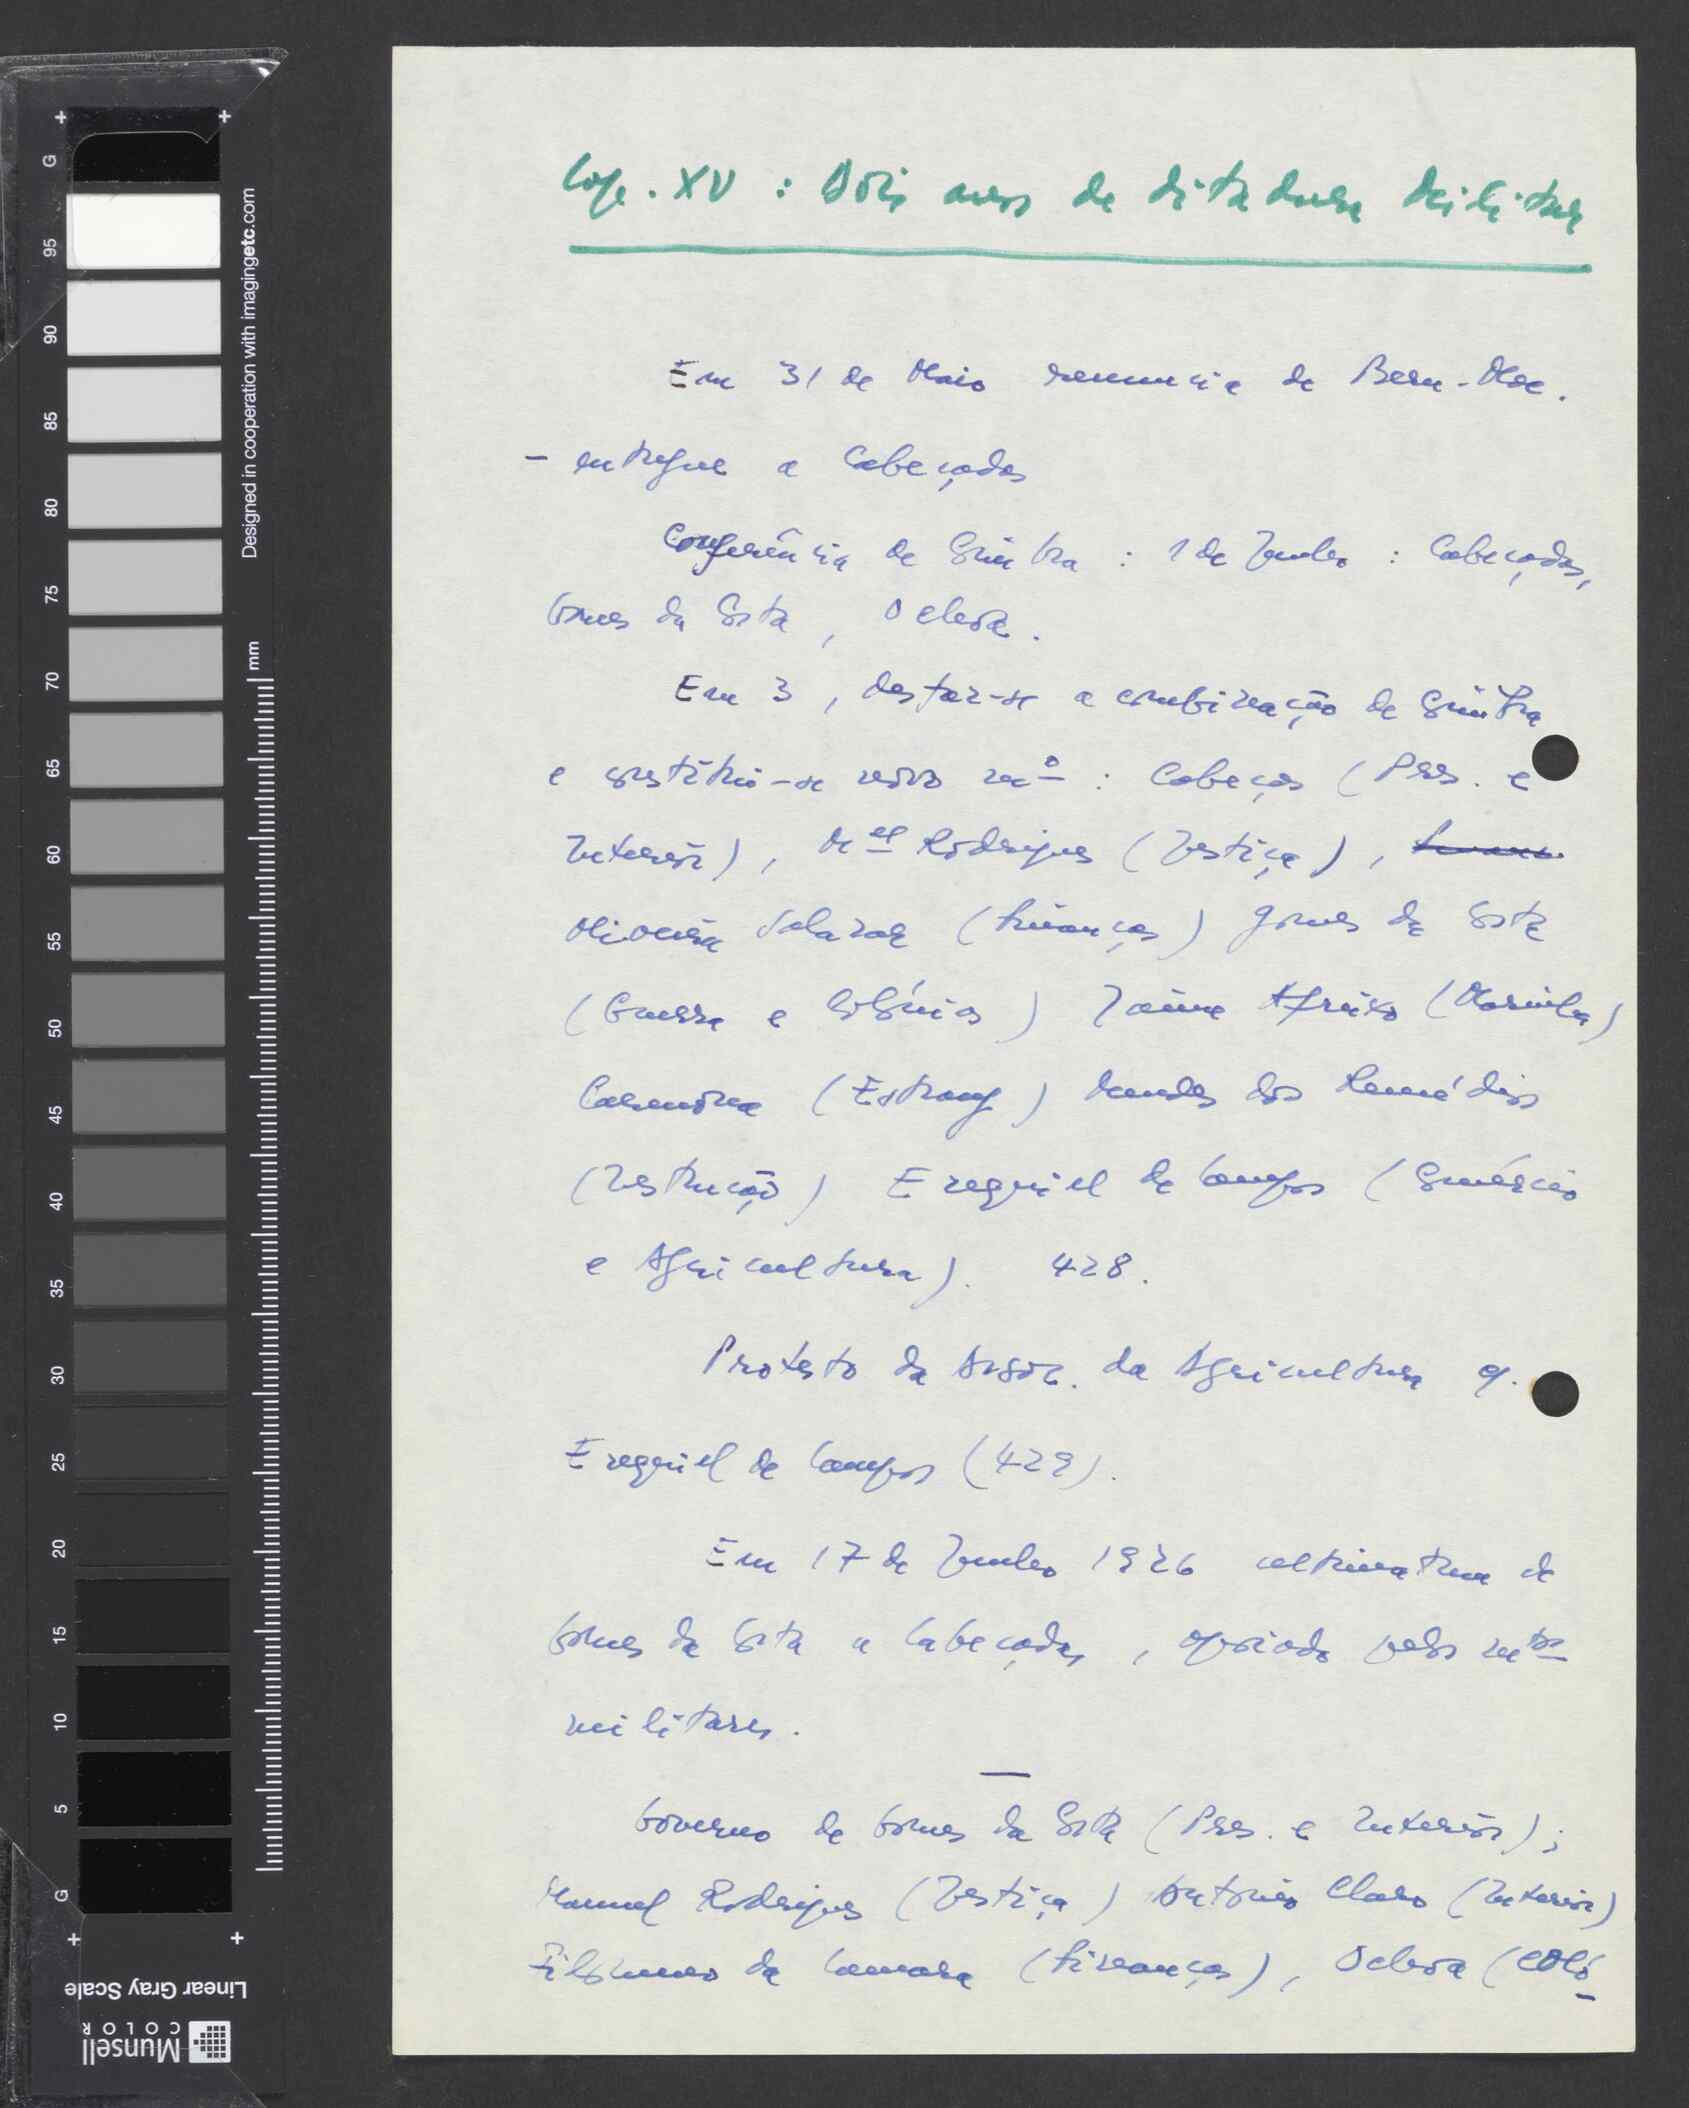 Cap. XV : Dois anos de ditadura militar
Em 31 de Maio renuncia de Bern. Mac.
- entregue a Cabeçadas
Conferência de Sintra : 1 de Junho : Cabeçadas,
Gomes da Costa, Ochoa.
Em 3, desfaz-se a combinação de Sintra
e constitui-se novo mº : Cabeças (Pres. e
Interior), Mel Rodrigues (Justiça),
Oliveira Salazar (Finanças) Gomes da Costa
(Guerra e Colónias) Jaime Afreixo (Marinha)
Carmona (Estrang) Mendes dos Remédios
(Instrução) Ezequiel de Campos (Comércio
e Agricultura). 428.
Protesto da Assoc. da Agricultura q.
Ezequiel de Campos (429).
Em 17 de Junho 1926 ultimatum de
Gomes da Costa a Cabeçadas, apoiado pelos mtos
militares.
—
Governo de Gomes da Costa (Pres. e Interior);
Manuel Rodrigues (Justiça) António Claro (Interior)
Filomeno da Camara (Finanças), Ochoa (Coló-
Munsell
COLOR
Linear Gray Scale
Designed in cooperation with imagingetc.com
mm
G
95
90
85
80
75
70
65
60
55
50
45
40
35
30
25
20
15
10
5
G